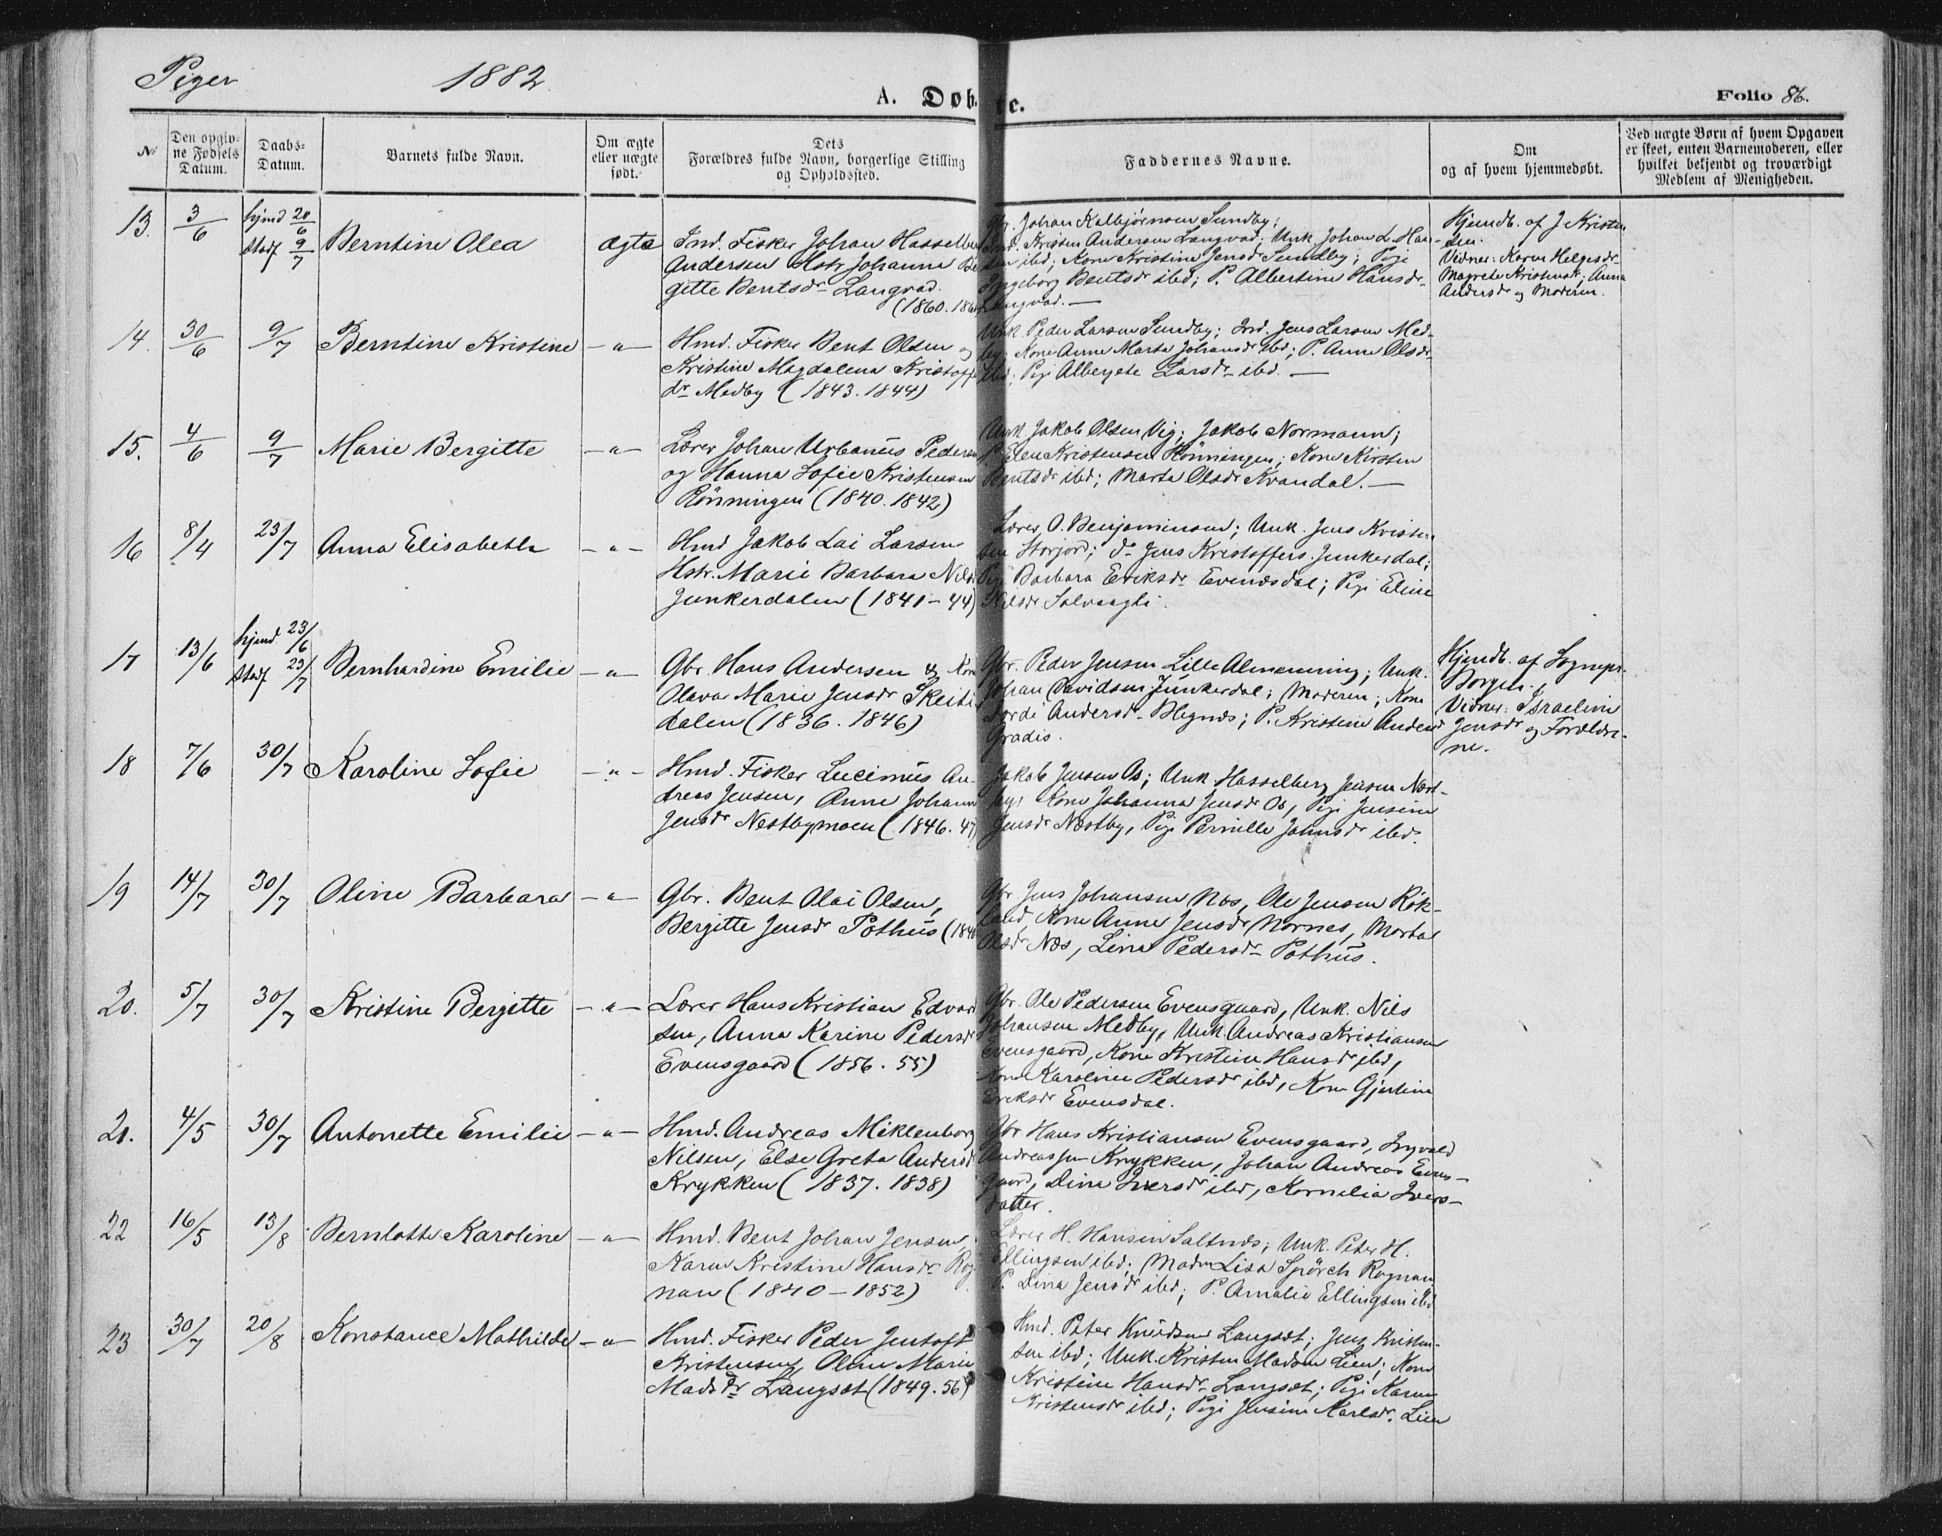 Piger 1882 A. Døbte. Folio 86.
№ Den opgivne Fødsels Datum. Daabs-Datum. Barnets fulde Navn. Om ægte eller uægte født. Dets Forældres fulde Navn, borgerlige Stilling og Opholdssted. Faddernes Navne. Om og af hvem hjemmedøbt. Ved uægte Børn af hvem Opgaven er skeet, enten Barnemoderen, eller hvilket bekjendt og troværdigt Medlem af Menigheden.
13. 3/6 hjmd 20/6 stadf 9/7 Berntine Olea ægte
Ind. Fisker Johan Hasselb
Andersen Hstr Johanna Be
gitte Bentsdr Langvad.
(1860.
Johan Kalbjørnsen Sundby;
Kristen Andersen Langvad; Unk. Johan L. Han-
sen ibd; Kone Kristine Jensdr Sundby; Pige
Ingeborg Bentsdr ibd; P. Albertine Hansdr
Langvad. —
Hjemdb. af J Kristen
sen.
Vidner: Karen Helgesdr
Magrete Kristensdr; Anna
Andersdr og Moderen.
14. 30/6 9/7 Berntine Kristine —"—
Hmd. Fisker Bent Olsen og
Kristine Magdalena Kristoff
dr Medby (1843. 1844)
Unk Peder Larsen Sundby; Ind. Jens Larsen Med-
by; Kone Anne Marta Johansdr ibd; P. Anne Olsdr
ibd; Pige Albergete Larsdr ibd. —
15. 4/6 9/7 Marie Bergitte —"—
Lærer Johan Urbanus Pedersen
og Hanna Sofie Kristensen
Rönningen (1840. 1842)
Unk. Jakob Olsen Vig; Jakob Normann;
P. Elen Kristensen Rönningen; Kone Kirsten
Bentsdr ibd; Marta Olsdr Kvandal. —
16 8/4 23/7 Anna Elisabeth —"—
Hmd Jakob Lai Larsen
Hstr. Marie Barbara Nilsd
Junkerdalen (1841-44)
Lærer O. Benjaminsen; Unk. Jens Kristen
sen Storjord; do Jens Kristoffers. Junkerdal;
Pige Barbara Eriksdr Evensdal; Pige Eline
Nilsdr Solvaagli.
17 13/6 hjmd 23/6 stadf 23/7 Bernhardine Emilie —"—
Gbr. Hans Andersen og Kone
Olava Marie Jensdr Skeiti
dalen (1836. 1846)
Gbr. Peder Jensen Lille Almenning; Unk.
Johan Davidsen Junkerdal; Moderen; Kone
Andersdr P. Kristine Anders
Gradis.
Hjemdb. af Sognepr.
Borgen.
Vidner: Israeline
Jensdr og Forældre-
ne.
18 7/6 30/7 Karoline Sofie —"—
Hmd. Fisker Lucimus An-
dreas Jensen, Anne Johanna
Jensdr Nestbymoen (1846. 47)
Jakob Jensen Os; Unk. Hasselberg Jensen Næst-
by; Kone Johanna Jensdr Os, Pige Jensine
Jensdr Næstby, Pige Pernille Johnsdr ibd.
19 14/7 30/7 Oline Barbara —"—
Gbr. Bent Olai Olsen,
Bergitte Jensdr Pothus (184
Gbr Jens Johansen Næs, Ole Jensen Røk-
land, Kone Anne Jensdr Nornes, Marta
Olsdr Næs, Lina Pedersdr Pothus.
20. 5/7 30/7 Kristine Bergitte —"—
Lærer Hans Kristian Edvard
sen, Anna Karine Pedersdr
Evensgaard (1856. 55)
Gbr. Ole Pedersen Evensgaard, Unk. Nils
Johansen Medby, Unk. Andreas Kristiansen
Evensgaard, Kone Kristine Hansdr ibd,
Kone Karoline Pedersdr ibd, Kone Gjertine
Eriksdr Evensdal.
21. 4/5 30/7 Antonette Emilie —"—
Hmd. Andreas Meklenborg
Nilsen, Else Greta Andersdr
Krykken (1837. 1838)
Gbr Hans Kristiansen Evensgaard, Ingvald
Andreassen Krykken, Johan Andreas Evens-
gaard, Dine Iversdr ibd, Kornelia Ivers-
datter.
22 16/5 13/8 Bernlotte Karoline —"—
Hmd. Bent Johan Jensen
Karen Kristine Hansdr Rog
nan (1840-1852)
Lærer H. Hansen Saltnæs; Unk. Peter H.
Ellingsen ibd; Madm Lisa Spörch Rognan
P. Dina Jensdr ibd; P. Amalie Ellingsen ibd
23 30/7 20/8 Konstance Mathilde —"—
Hmd. Fisker Peder Jentoft
Kristensen, Oline Marie
Madsdr Langset (1849. 56)
Hmd. Peter Knudsen Langset; Jens Kristen-
sen ibd; Unk. Kristen Madsen Lien; Kone
Kristine Hansdr Langset; Pige Karen
Kristensdr ibd; Pige Jensine Karlsdr Lien